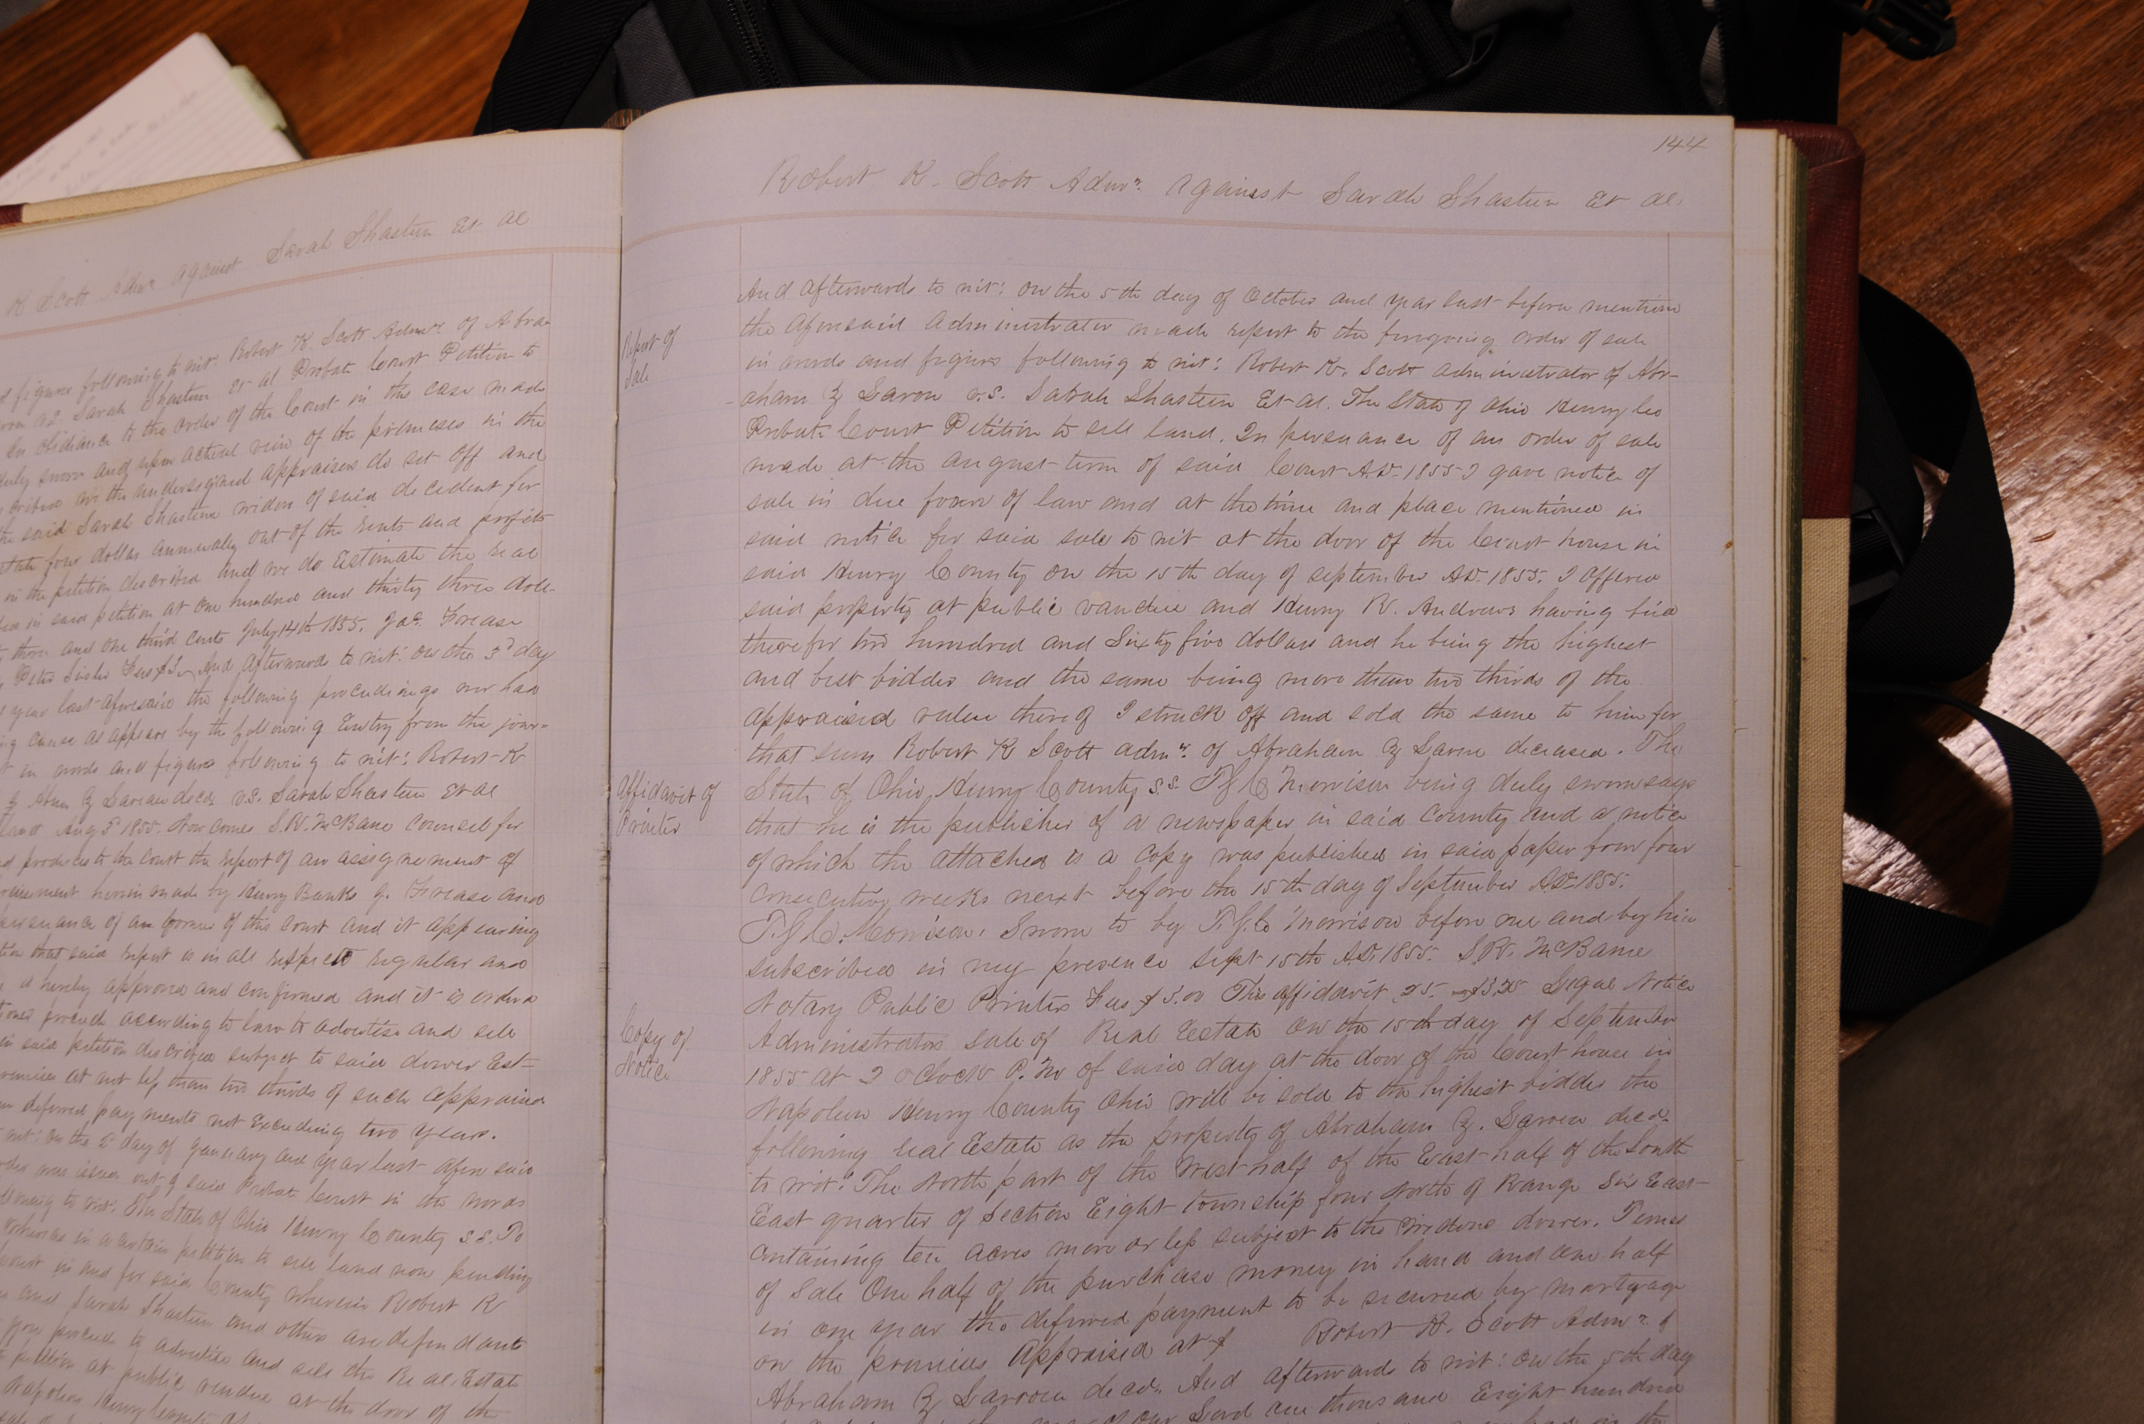 Sarah Shasteen Et al
K Scott Admr. against
figures following to wit: Robert K Scott Admr. of Abra
vs. Sarah Shasteen et al Probate Court Petition to
In obidiance to the order of the Court in this case made
duly sworn and upon actual view of the premises in the
we the undersigned appraisers do set off and
the said Sarah Shasteen widow of said decedent for
four dollars annually out of the rents and profits
in the petition described and we do Estimate the real
in said petition at one hundred and thirty three doll-
three and one third cents July 14th 1855. Jac. Frease
Peter And afterwards to wit: on the 3d day
year last aforesaid the following proceedings were had
cause as appears by the following Entry from the jour-
in words and figures following to wit: Robert K
Z decd. vs. Sarah Shasteen Et al
Aug 3d 1855. Now comes S.W. McBane counsel for
and produces to the Court the report of an assignement of
herein made by Henry Banks J. Frease and
persuance of an order of this Court and it appearing
that said report is in all respects regular and
is hereby approved and confirmed and it is ordered
proceed according to law to advertise and sell
in said petition described subject to said dower Est-
at not less than two thirds of such appraised
deferred payments not Exceeding two years.
on the day of January and year last afore said
was issued out of said Probate Court in the words
to wit: The State of Ohio Henry County s.s. To
in a certain petition to sell land now pending
Court in and for said County wherein Robert K
and Sarah Shasteen and others are defendants
you proceed to advertise and sell the Real Estate
petition at public vendue at the door of the
Napoleon Henry County
144
Robert K. Scott Admr. Against Sarah Shasteen Et al.
Report of
Sale
And afterwards to wit: on the 5th day of October and year last before mentioned
the aforesaid Administrator made report to the foregoing order of sale
in words and figures following to wit: Robert K. Scott administrator of Abr-
aham Z Sarow v.s. Sarah Shasteen Et al. The State of Ohio Henry Co
Probate Court Petition to sell land. In persuance of an order of sale
made at the august term of said Court A.D. 1855 I gave notice of
sale in due form of law and at the time and place mentioned in
said notice for said sale to wit at the door of the Court house in
said Henry County on the 15th day of september A.D. 1855. I offered
said property at public vandue and Henry W. Andrews having bid
therefor two hundred and Sixty five dollars and he being the highest
and best bidder and the same being more than two thirds of the
appraised value thereof I struck off and sold the same to him for
that sum Robert K Scott admr. of Abraham Z Sarow deceased. The
Affidavit of
Printer
State of Ohio, Henry County, s.s. T.J.C Morrison being duly sworn says
that he is the publisher of a newspaper in said county and a notice
of which the attached is a copy was published in said paper four four
consecutive weeks next before the 15th day of September A.D. 1855.
T.J.C. Morrison. Sworn to by T.J.C Morrison before me and by him
subscribed in my presence Sept 15th A.D. 1855. S.W. McBane
Notary Public Printers Fees $3.00 This affidavit .25. $3.25 Legal Notice
Copy of
Notice
Administrators sale of Real Estate on the 15th day of September
1855 at 2 o Clock P.M of said day at the door of the Court house in
Napoleon Henry County Ohio will be sold to the highest bidder the
following real Estate as the property of Abraham Z. Sarow decd.
to wit: The North part of the West half of the East half of the South
East quarter of Section Eight township four North of Range Six East
containing ten acres more or less subject to the widows dower. Terms
of Sale One half of the purchase money in hand and one half
in one year the deferred payment to be secured by mortgage
on the premises Appraised at $ Robert K. Scott Admr. of
Abraham Z Sarow decd. And afterwards to wit: on the 5th day
of our Lord one thousand Eight hundred